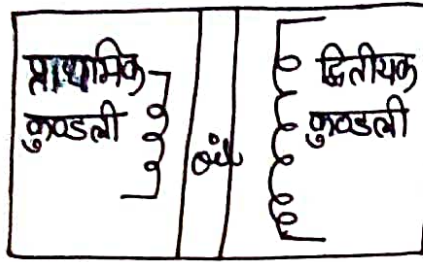 प्राथमिक
कुण्डली
द्वितीयक
कुण्डली